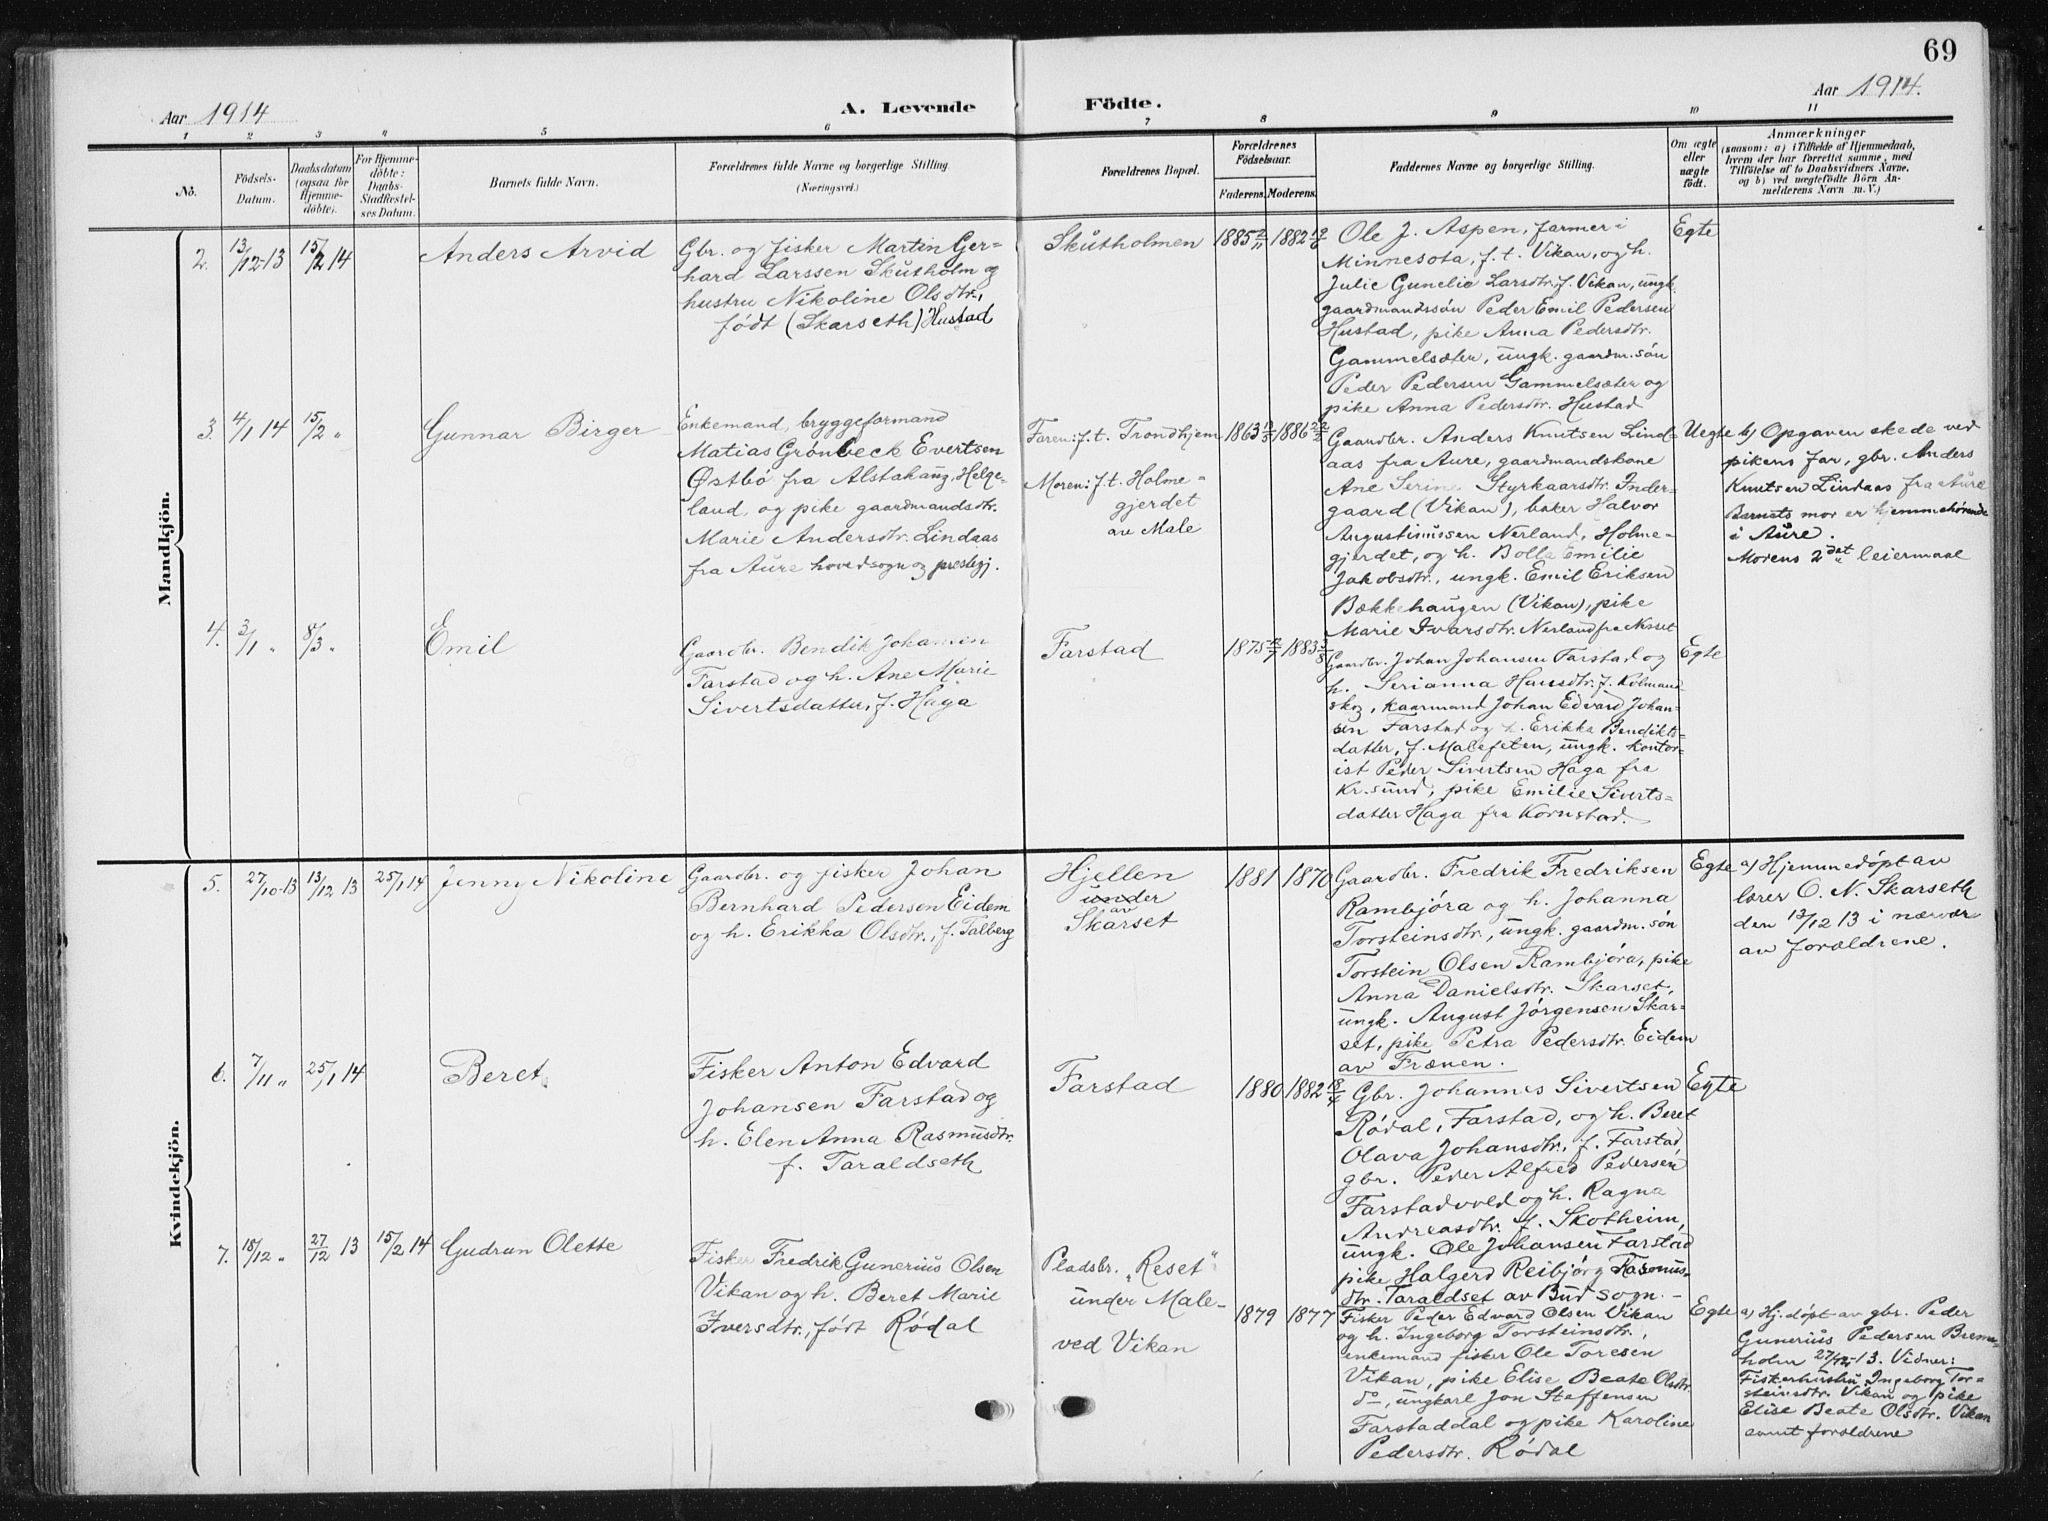 69
Aar 1914
A. Levende
Födte.
Aar 1914.
1 2 3 4 5 6 7 8 9 10 11
No.
Födsels-
Datum.
Daabsdatum
(ogsaa for
Hjemme-
döbte).
For Hjemme-
döbte:
Daabs-
Stadfæstel-
ses Datum.
Barnets fulde Navn.
Forældrenes fulde Navne og borgerlige Stilling.
(Næringsvei.)
Forældrenes Bopæl.
Forældrenes
Födselsaar.
Faderens. Moderens.
Faddernes Navne og borgerlige Stilling.
Om ægte
eller
uægte
födt.
Anmærkninger
(saasom: a) i Tilfælde af Hjemmedaab,
hvem der har forrettet samme, med
Tilföielse af to Daabsvidners Navne,
og b) ved uægtefödte Börn An-
melderens Navn m. V.)
Mandkjön.
2. 13/12-13 15/2 14
Anders Arvid
Gbr. og fisker Martin Ger-
hard Larssen Skutholm og
hustru Nikoline Olsdtr.,
født (Skarseth) Hustad
Skutholmen
1885 2/11 1882 19/6
Ole J. Aspen, farmer i
Minnesota, f. t. Vikan, og h.
Julie Gunelie Larsdtr. f. Vikan, ungk.
gaardmandssøn Peder Emil Pedersen
Hustad, pike Anna Pedersdtr.
Gammelsæter, ungk. gaardm. søn
Peder Pedersen Gammelsæter og
pike Anna Pedersdtr. Hustad
Egte
3. 4/1 14 15/2 "
Gunnar Birger
Enkemand, bryggeformand
Matias Grønbeck Evertsen
Østbø fra Alstahaug, Helge-
land, og pike gaardmandsdtr.
Marie Andersdtr. Lindaas
fra Aure hovedsogn og prestegj.
Faren: f. t. Trondhjem
Moren: f. t. Holme-
gjerdet
av Male
1863 1886
Gaardbr. Anders Knutsen Lind-
aas fra Aure, gaardmandskone
Ane Serine Styrkaarsdtr. Inder-
gaard (Vikan), baker Halvor
Augustinussen Nerland, Holme-
gjerdet, og h. Bolla Emilie
Jakobsdtr., ungk. Emil Eriksen
Bækkehaugen (Vikan), pike
Marie Ivarsdtr. Nerland fra Nesset
Uegte
b) Opgaven skede ved
pikens far, gbr. Anders
Knutsen Lindaas fra Aure
Barnets mor er hjemmehørende
i Aure.
Morens 2det leiermaal
4. 3/1 " 8/3 "
Emil
Gaardbr. Bendik Johansen
Farstad og h. Ane Marie
Sivertsdatter, f. Haga
Farstad
1875 1883
Gaardbr. Johan Johansen Farstad og
h. Serianna Hansdtr. f. Kolmand-
skog, kaarmand Johan Edvard Johan-
sen Farstad og h. Erikka Bendikts-
datter, f. Malefeten, ungk. kontor-
ist Peder Sivertsen Haga fra
Kr.sund, pike Emilie Siverts-
datter Haga fra Kornstad.
Egte
Kvindekjön.
5. 27/10-13 13/12 13 25/1 14
Jenny Nikoline
Gaardbr. og fisker Johan
Bernhard Pedersen Eidem
og h. Erikka Olsdtr., f. Talberg
Hjellen
under
av
Skarset
1881 1870
Gaardbr. Fredrik Fredriksen
Rambjøra og h. Johanna
Torsteinsdtr., ungk. gaardm. søn
Torstein Olsen Rambjøra, pike
Anna Danielsdtr. Skarset,
ungk. August Jørgensen Skar-
set, pike Petra Pedersdtr. Eidem
av Frænen.
Egte
a) Hjemmedøpt av
lærer O. N. Skarseth
den 13/12 13 i nærvær
av forældrene.
6. 7/11 " 25/1 14
Beret
Fisker Anton Edvard
Johansen Farstad og
h. Elen Anna Rasmusdtr.
f. Taraldseth
Farstad
1880 1882 18/4
Gbr. Johannes Sivertsen
Rødal, Farstad, og h. Beret
Olava Johansdtr. f. Farstad,
gbr. Peder Alfred Pedersen
Farstadvold og h. Ragna
Andreasdtr. f. Skotheim,
ungk. Ole Johansen Farstad
pike Halgerd Reibjørg Rasmus-
dtr. Taraldset av Bud sogn. -
Egte
7. 18/12 " 27/12 13 15/2 14
Gudrun Olette
Fisker Fredrik Gunerius Olsen
Vikan og h. Beret Marie
Iversdtr., født Rødal
Pladsbr. „Reset"
under Male-
ved Vikan
1879 1877
Fisker Peder Edvard Olsen Vikan
og h. Ingeborg Torsteinsdtr.,
enkemand fisker Ole Toresen
Vikan, pike Elise Beate Olsdtr.
do, ungkarl Jon Staffensen
Farstaddal og pike Karoline
Pedersdtr. Rødal
Egte
a) Hj. døpt av gbr. Peder
Gunerius Pedersen Brems-
holm 27/12-13. Vidner:
Fiskerhustru Ingeborg Tor-
steinsdtr. Vikan og pike
Elise Beate Olsdtr. Vikan
samt forældrene